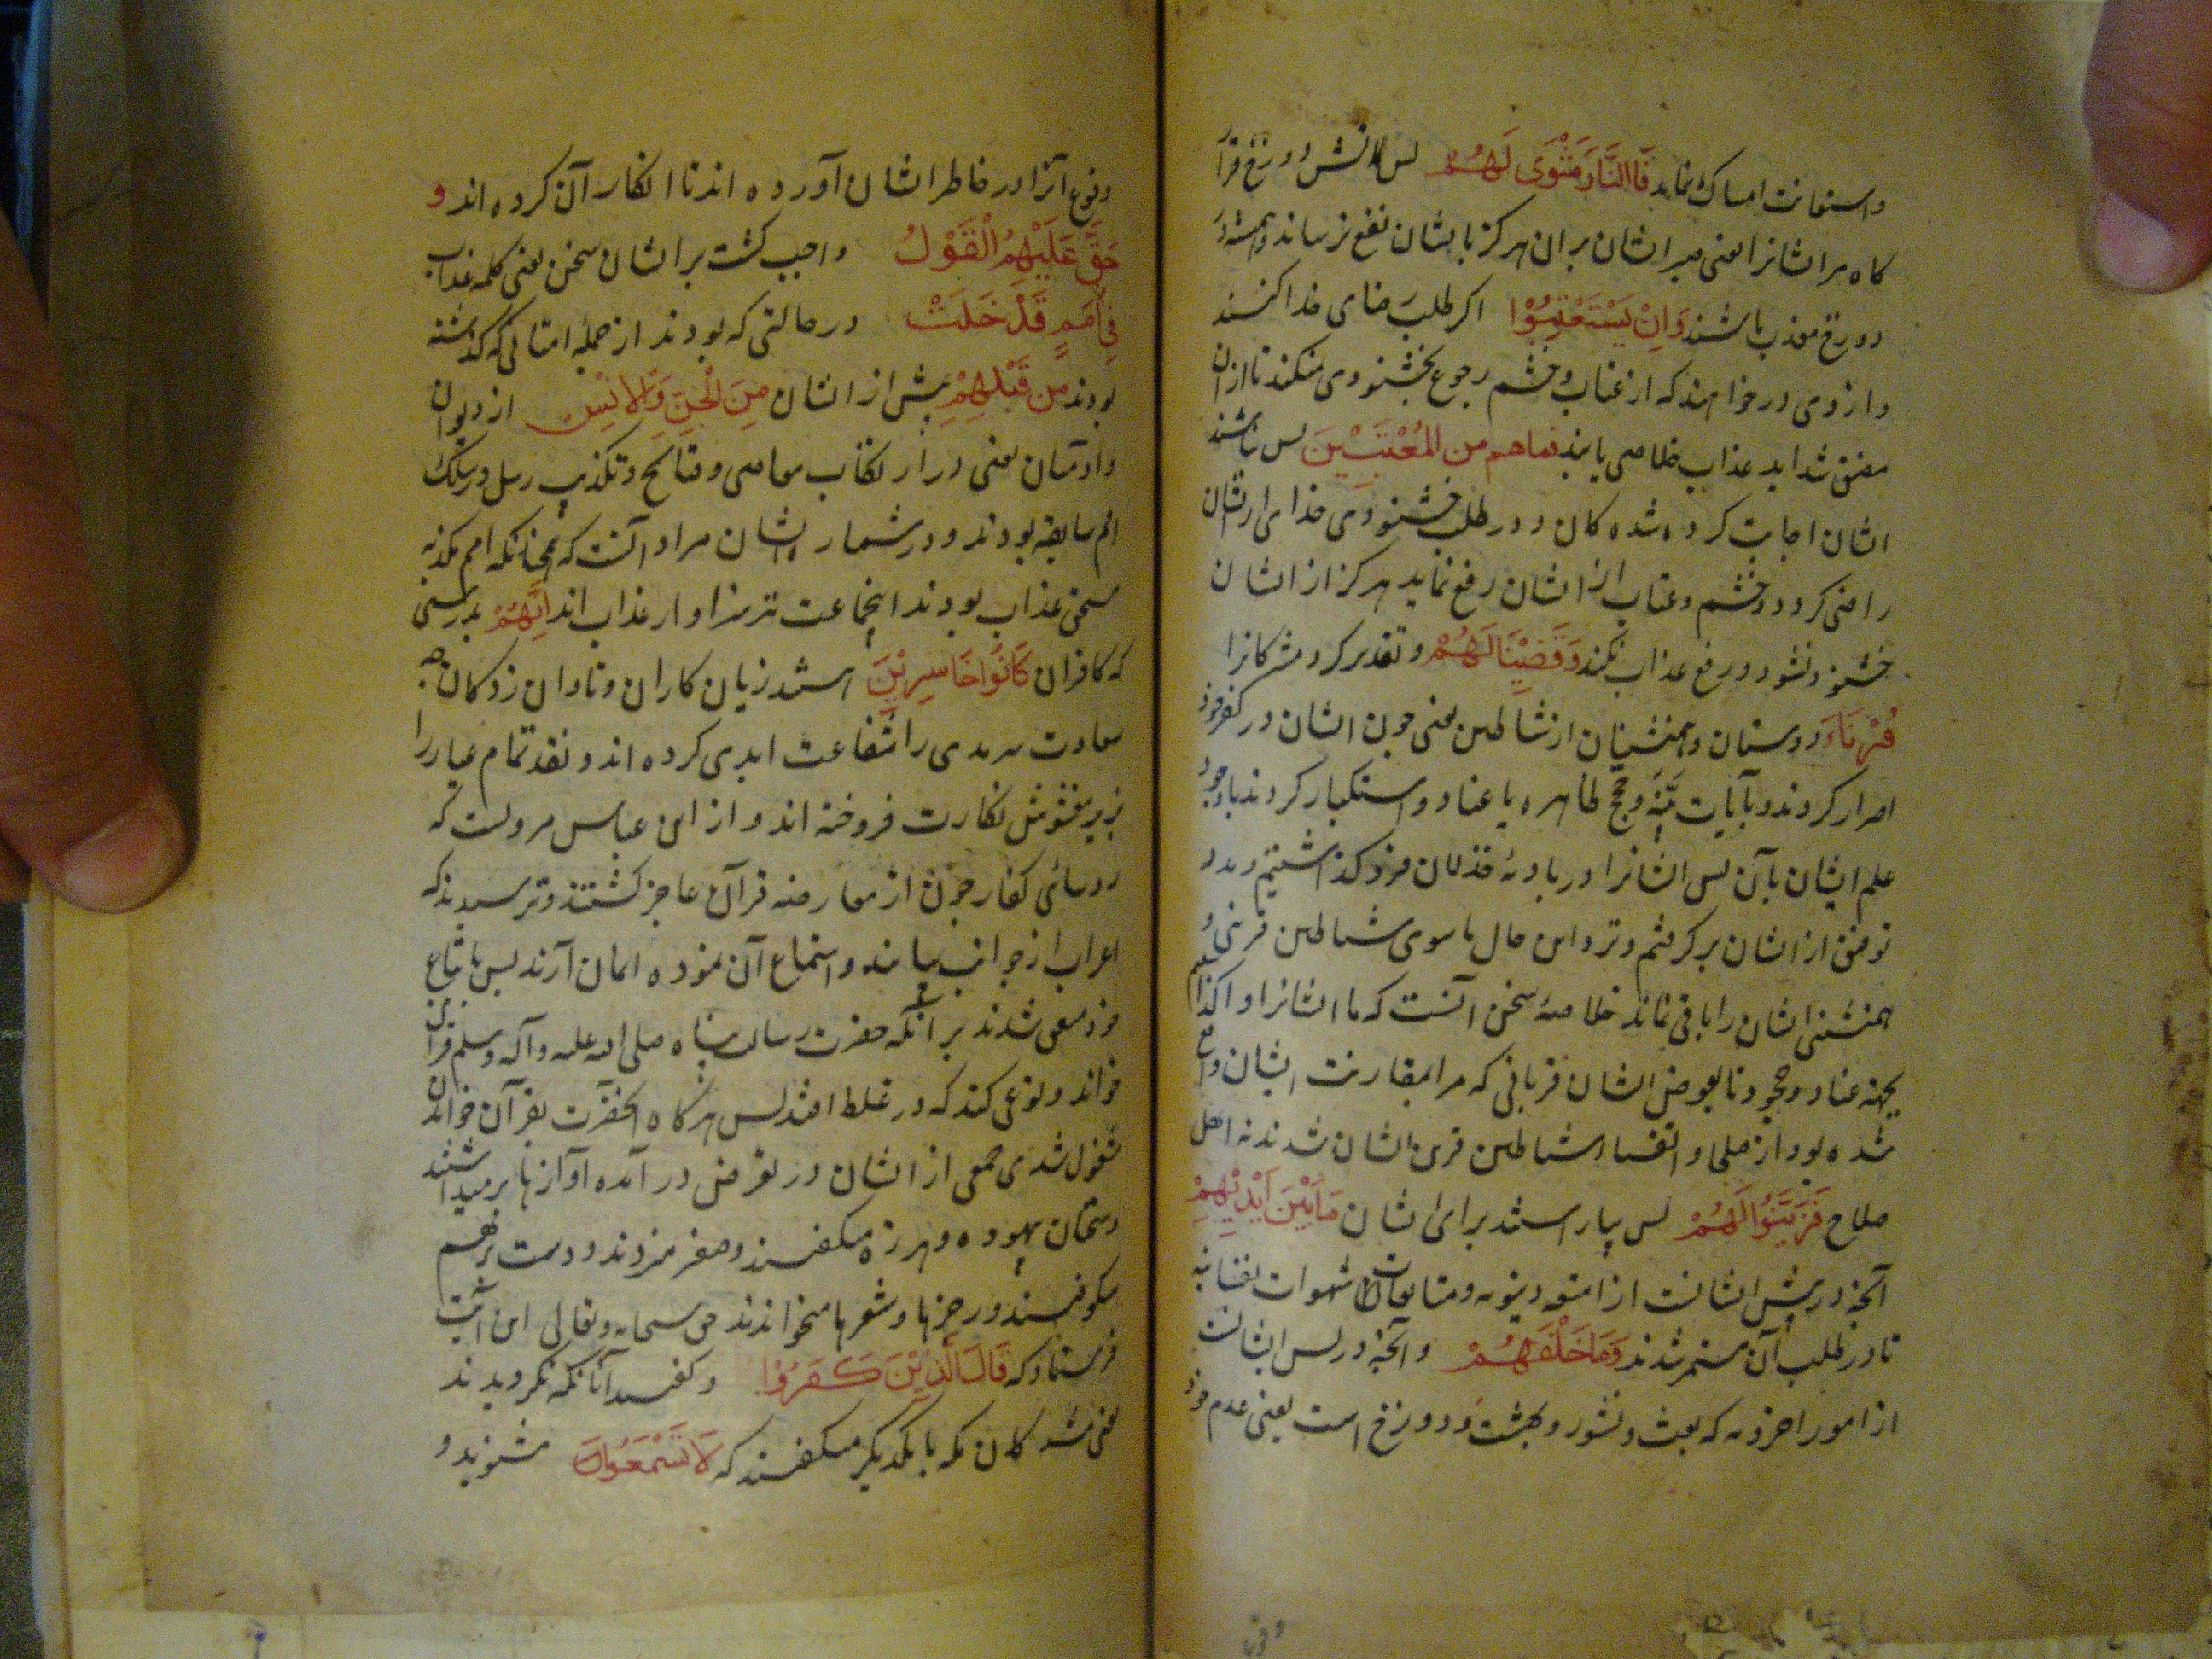 واستغاثت امساک نماید فَاالنَّارُ مَثْوًی لَهُمْ پس آتش دوزخ قرار
کاه مر ایشانرا یعنی صبر ایشان بران هرکز بایشان نفع نرساند و همیشه در
دوزخ معذب باشند وَاِنْ یَسْتَعْتِبُوْا اکر طلب رضای خدا کنند
و از وی درخواهند که از عتاب و خشم رجوع بخشنودی میکند تا ازان
مضیق شداید عذاب خلاصی یابند فماهم من المُعْتَبِیْنَ پس نباشند
ایشان اجابت کرده شده کان در طلب خشنودی خدای از ایشان
راضی کردد و خشم و عتاب از ایشان رفع نماید هرکز از ایشان
خشنود نشود و رفع عذاب نکند وَقَیَّضْنَا لَهُمْ و تقدیر کرد مشرکانرا
قُرَنَاءَ دوستان و همنشینان از شیاطین یعنی چون ایشان در کفر خود
اصرار کردند و بآیات بیّنه و حجج ظاهره با عناد و استکبار کردند با وجود
علم ایشان بآن پس ایشانرا در بادیهٔ خذلان فرو کذاشتیم و مدد
توفیق از ایشان برکرفتیم و درین حال ما سوی شیاطین قرینی و
همنشینی ایشان را باقی نماند خلاصهٔ سخن آنست که ما ایشانرا واکذاشتیم
بجهة عناد و جحود تا بعوض ایشان قربانی که مرا بمقارنت ایشان واقع
شده بود از صلحا و اتقیا شیاطین قرین ایشان شدند نه اهل
صلاح فَزَیَّنُوْا لَهُمْ پس بیاراستند برای ایشان مَابَیْنَ اَیْدِیْهِمْ
آنچه در پیش ایشانست از امتعه دنیویه و متابعت شهوات نفسانیه
تا در طلب آن مستمر شدند وَمَا خَلْفَهُمْ و آنچه در پس ایشانست
از امور اخرویه که بعث و نشور و بهشت و دوزخ است یعنی عدم
وقوع
وقوع آنرا در خاطر ایشان آورده اند تا انکار آن کرده اند و
حَقَّ عَلَیْهِمُ الْقَوْلُ واجب کشت بر ایشان سخن یعنی کلمه عذاب
فِی اُمَمٍ قَدْ خَلَتْ در حالتی که بودند از جمله امتانی که کذشته
بودند مِن قَبْلِهِمْ پیش از ایشان مِنَ الْجِنِّ وَالْاِنْسِ از دیوان
و ادمیان یعنی در ارتکاب معاصی و قبایح و تکذیب رسل در سلک
امم سابقه بودند و در شمار ایشان مراد آنست که همچنانکه امم مکذبه
مستحق عذاب بودند اینجماعت نیز سزاوار عذاب اند اِنَّهُمْ بدرستی
که کافران کَانُوْا خَاسِرِیْنَ هستند زیان کاران و تاوان زدکان چه
سعادت سرمدی را شقاوت ابدی کرده اند و نقد تمام عیار را
بزیر مغشوش فروخته اند و از ابن عباس مرویست که
روسای کفار چون از معارضه قرآن عاجز کشتند و ترسیدند که
اعراب از جوانب بیایند و استماع آن نموده ایمان آرند پس باتباع
خود سعی شدند بر آنکه حضرت رسالت پناه صلی الله علیه وآله وسلم قرآن
خواند و نوعی کند که در غلط افتد پس هرکاه آنحضرت بقرآن خواندن
مشغول شدی جمعی از ایشان در تعرض در آمده آوازها برمیداشتند
و سخنان بیهوده و هرزه میکفتند و صفیر میزدند و دست بر هم
میکوفتند و رجزها و شعرها میخواندند حق سبحانه و تعالی این آیت
فرستاد که قَالَ الَّذِیْنَ کَفَرُوْا و کفتند آنانکه نکرویدند
یعنی مشرکان مکه با یکدیکر میکفتند که لَا تَسْمَعُوْا مشنوید و